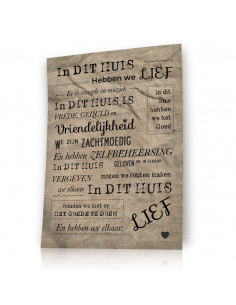 In DIT HUIS
Hebben we LIEF
Er is vreugde en muziek
in dit
In DIT HUIS IS
huis
VREDE, GEDULD en
hebben
we het
Vriendelijkheid
Goed
We ZIJN ZACHTMOEDIG
En hebben ZELFBEHEERSING
In DIT HUIS GELOVEN we IN ELKAAR
VERGEVEN mogen we fouten maken
we elkaar In DIT HUIS
houden we niet op
HET GOEDE TE DOEN
LIEF
En hebben we elkaar